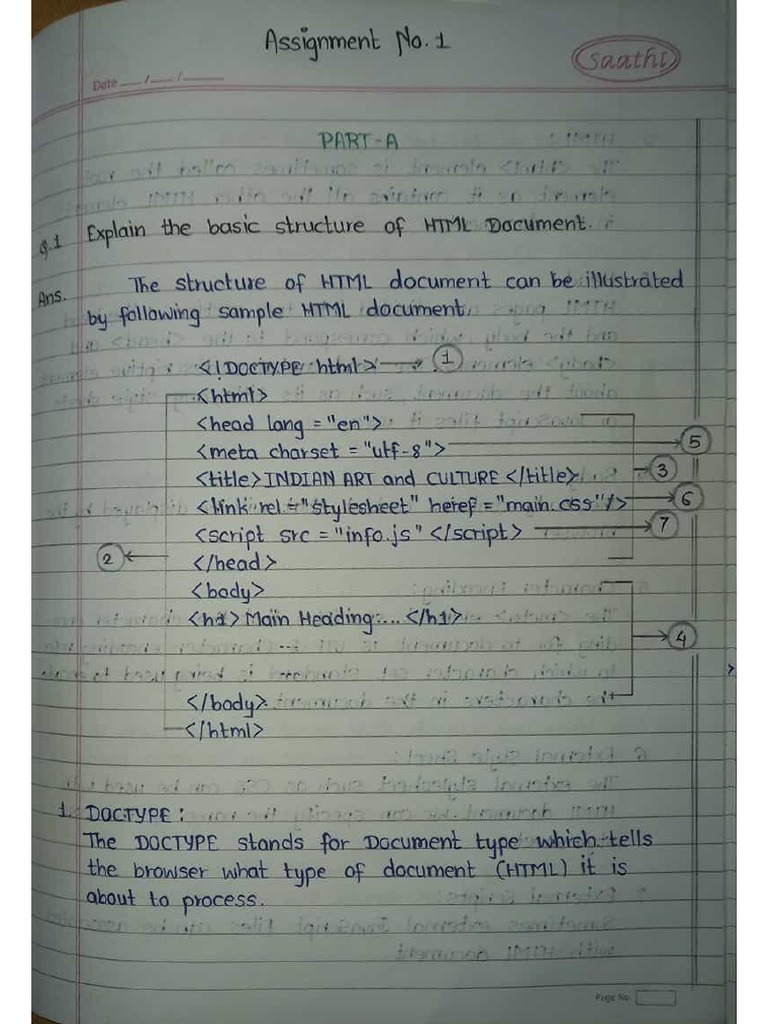 Assignment No. 1
saathi
Date ___/___/______
PART-A
Q.1 Explain the basic structure of HTML Document.
Ans. The structure of HTML document can be illustrated
by following sample HTML document.
<!DOCTYPE html> → 1
<html>
<head lang = "en">
<meta charset = "utf-8"> → 5
<title> INDIAN ART and CULTURE </title> → 3
<link rel = "stylesheet" heref = "main.css"/> → 6
<script src = "info.js" </script> → 7
2 ← </head>
<body>
<h1> Main Heading ... </h1>
4
</body>
</html>
1. DOCTYPE :
The DOCTYPE stands for Document type which tells
the browser what type of document (HTML) it is
about to process.
Page No.